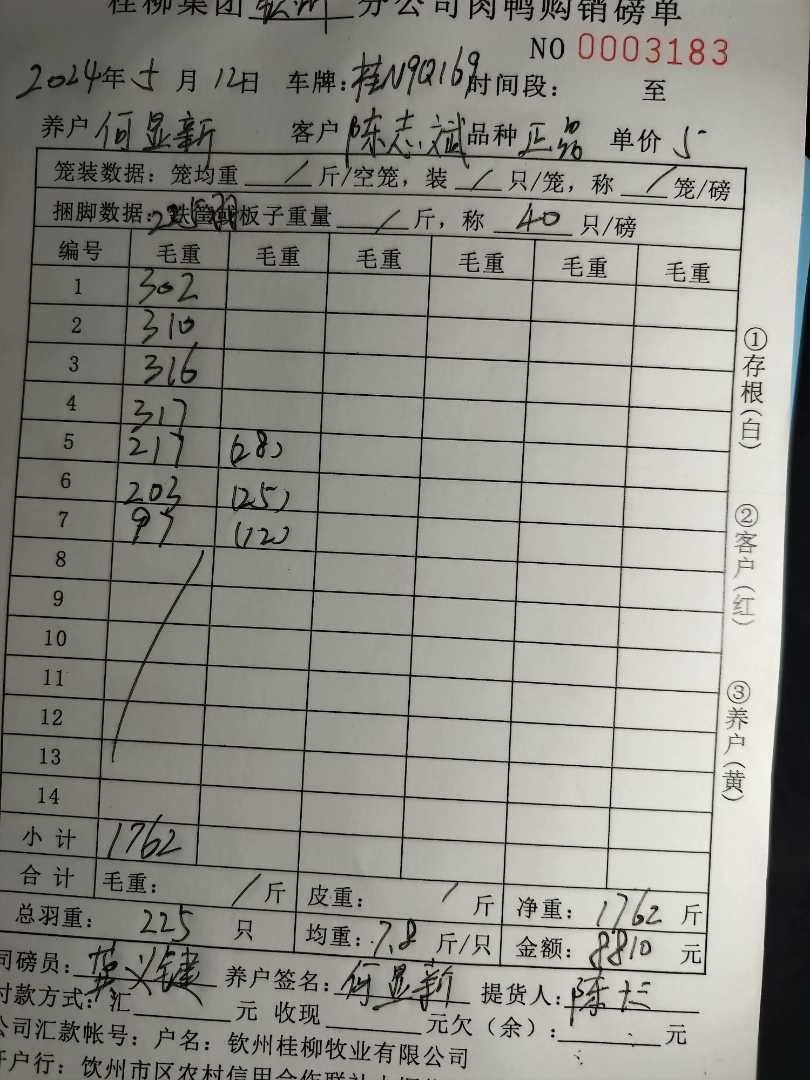 桂柳集团 钦州 分公司肉鸭购销磅单
NO 0003183
2024年5月12日 车牌:桂N9Q169时间段: 至
养户 何显新 客户 陈志斌 品种 正品 单价 5
笼装数据: 笼均重 / 斤/空笼, 装 / 只/笼, 称 / 笼/磅
捆脚数据: 板子重量 / 斤, 称 40 只/磅
编号 毛重 毛重 毛重 毛重 毛重 毛重
1 302
2 310
3 316
4 317
5 217 (28)
6 203 (25)
7 97 (12)
8
9
10
11
12
13
14
小计 1762
合计 毛重: / 斤 皮重: / 斤 净重: 1762 斤
总羽重: 225 只 均重: 7.8 斤/只 金额: 8810 元
司磅员: 养户签名: 何显新 提货人: 陈
付款方式: 汇 元 收现 元欠(余): 元
公司汇款帐号: 户名: 钦州桂柳牧业有限公司
开户行: 钦州市区农村信用合作联社
①存根(白)
②客户(红)
③养户(黄)